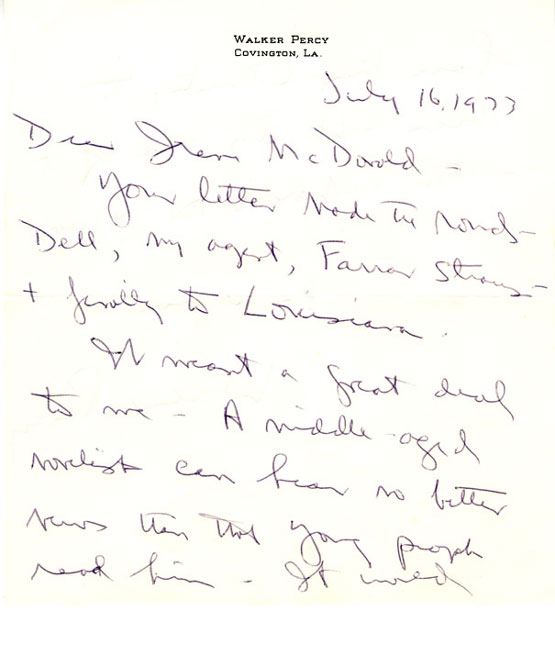 WALKER PERCY
COVINGTON, LA.
July 16, 1973
Dear McDonald -
Your letter made the rounds -
Dell, my agent, Farrar Straus -
+ finally to Louisiana.
It meant a great deal
to me - A middle-aged
novelist can hear no better
news than that young people
read him - It